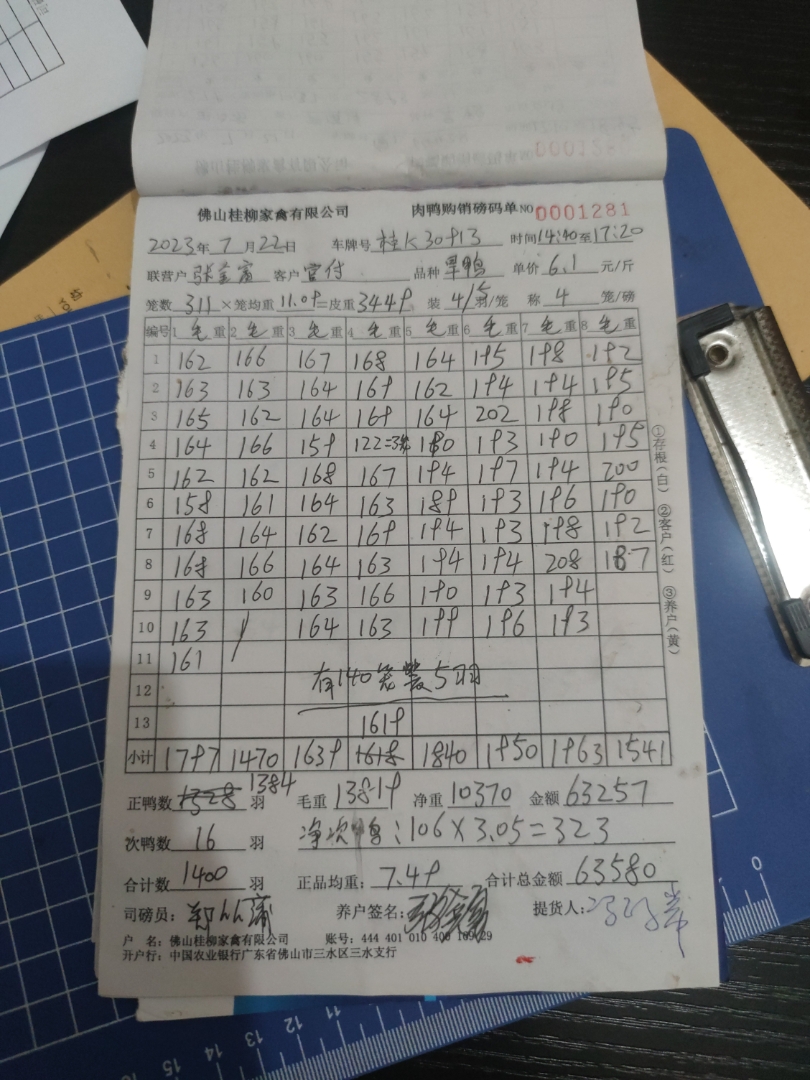 佛山桂柳家禽有限公司 肉鸭购销磅码单 NO 0001281
2023年 7月 22日 车牌号 桂K30913 时间 14:40 至 17:20
联营户 客户 品种 单鸭 单价 6.1 元/斤
笼数 311 ×笼均重 11.09 =皮重 3449 装 4/5 羽/笼 称 4 笼/磅
编号 1 毛重 2 毛重 3 毛重 4 毛重 5 毛重 6 毛重 7 毛重 8 毛重
1 162 166 167 168 164 195 198 192
2 163 163 164 169 162 194 194 195
3 165 162 164 169 164 202 198 190
4 164 166 159 122=3笼 180 193 190 195
5 162 162 168 167 194 197 194 200
6 158 161 164 163 189 193 196 190
7 168 164 162 169 194 193 198 192
8 168 166 164 163 194 194 208 187
9 163 160 163 166 190 193 194
10 163 / 164 163 199 196 193
11 161
12 有140笼装5羽
13 1619
小计 1797 1470 1639 1618 1840 1950 1963 1541
正鸭数 1328 1384 羽 毛重 13819 净重 10370 金额 63257
次鸭数 16 羽 净次鸭:106×3.05=323
合计数 1400 羽 正品均重: 7.49 合计总金额 63580
司磅员: 养户签名: 提货人:
户 名: 佛山桂柳家禽有限公司 账号: 444 401 010 400 169 29
开户行: 中国农业银行广东省佛山市三水区三水支行
①存根(白) ②客户(红) ③养户(黄)
0
11
12
13
14
15